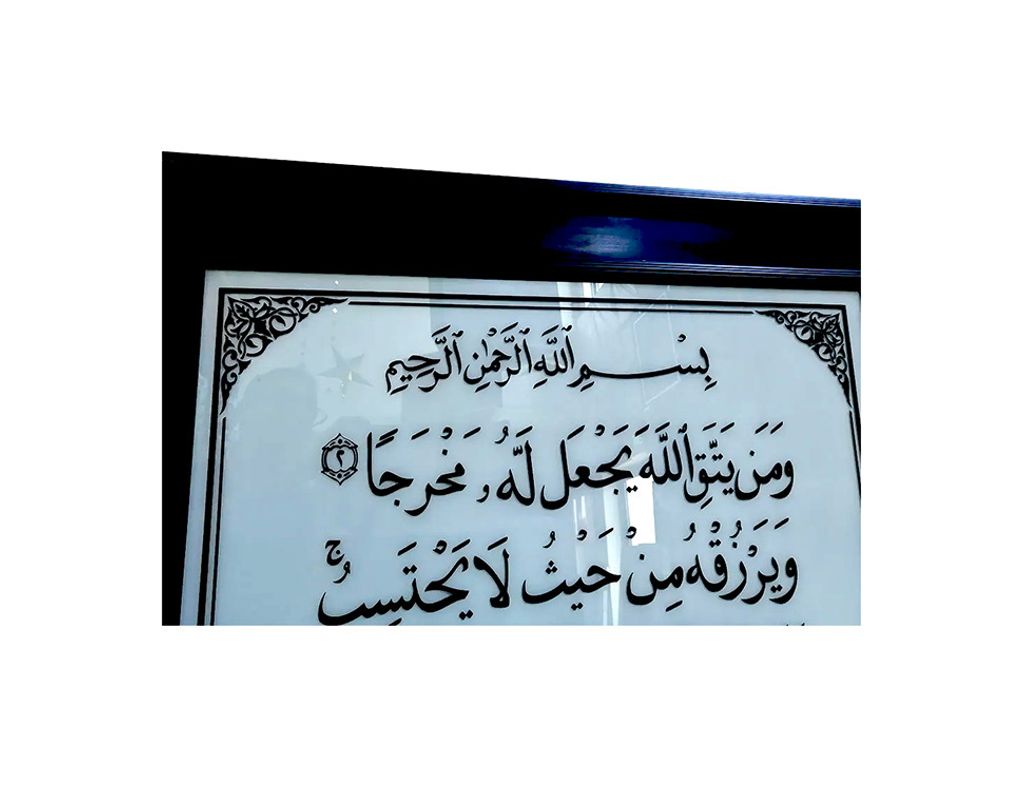 بِسْمِ ٱللَّهِ ٱلرَّحْمَٰنِ ٱلرَّحِيمِ
وَمَن يَتَّقِ ٱللَّهَ يَجْعَل لَّهُۥ مَخْرَجًا ٢
وَيَرْزُقْهُ مِنْ حَيْثُ لَا يَحْتَسِبُ ۚ